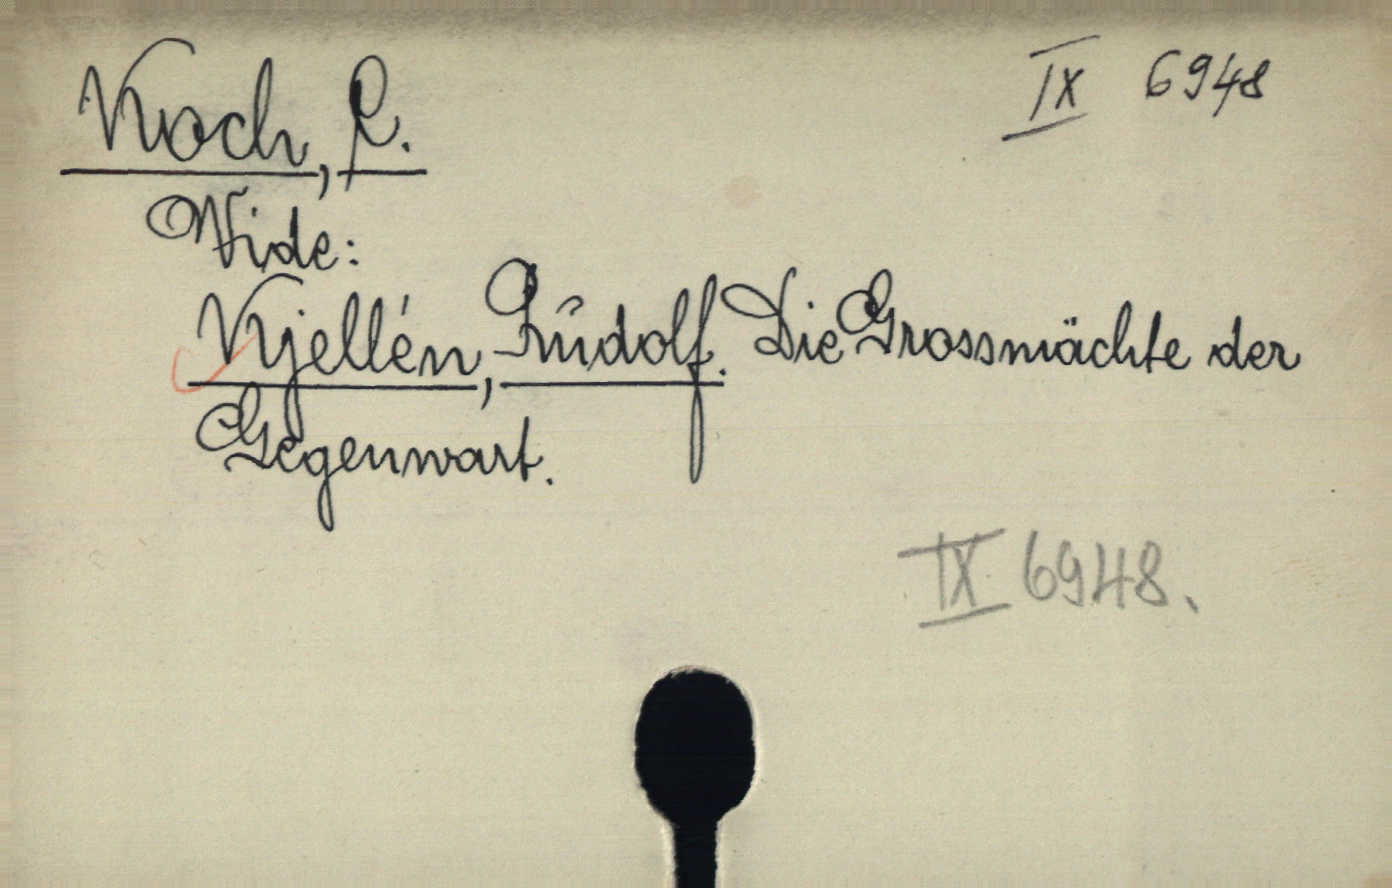 Koch, C.
IX 6948
Vide:
Kjellén, Rudolf. Die Grossmächte der
Gegenwart.
IX 6948.